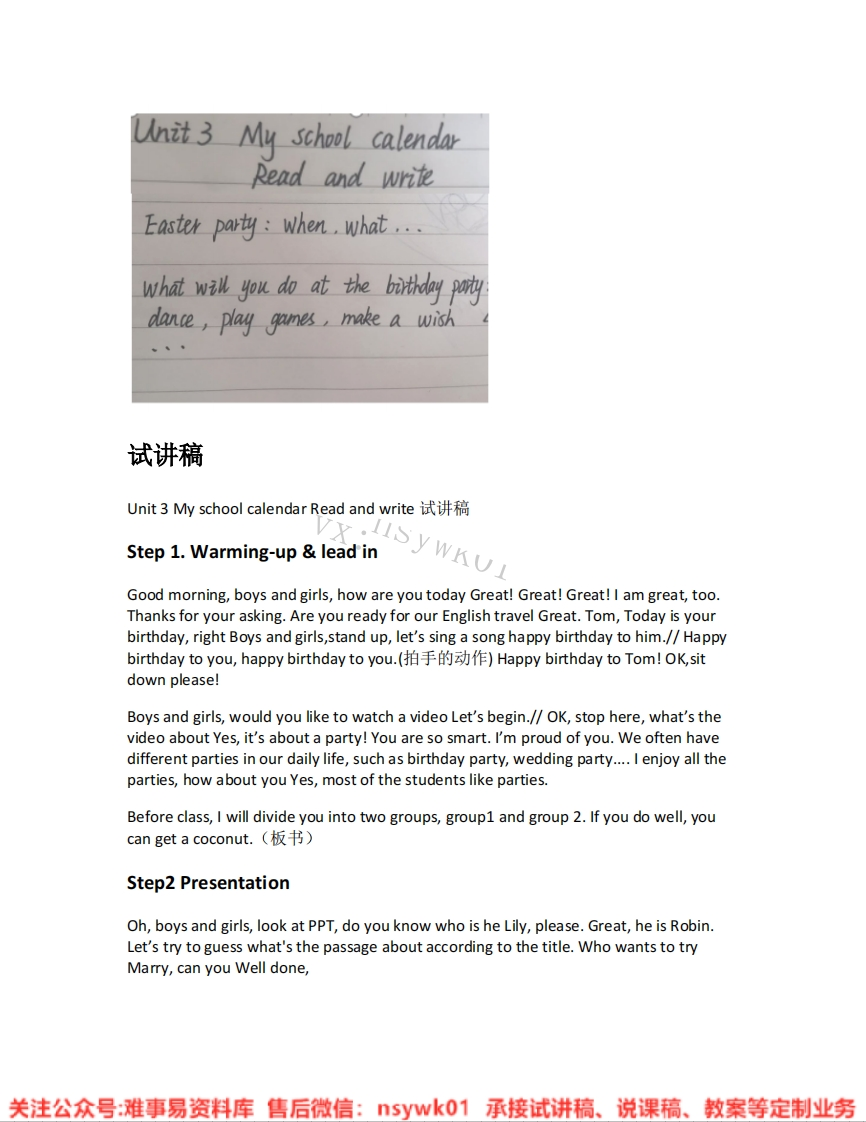 Unit 3 My school calendar
Read and write
Easter party: when, what ...
What will you do at the birthday party:
dance, play games, make a wish
...
试讲稿
Unit 3 My school calendar Read and write 试讲稿
VX:nsywk01
Step 1. Warming-up & lead in
Good morning, boys and girls, how are you today Great! Great! Great! I am great, too.
Thanks for your asking. Are you ready for our English travel Great. Tom, Today is your
birthday, right Boys and girls,stand up, let's sing a song happy birthday to him.// Happy
birthday to you, happy birthday to you.(拍手的动作) Happy birthday to Tom! OK,sit
down please!
Boys and girls, would you like to watch a video Let's begin.// OK, stop here, what's the
video about Yes, it's about a party! You are so smart. I'm proud of you. We often have
different parties in our daily life, such as birthday party, wedding party.... I enjoy all the
parties, how about you Yes, most of the students like parties.
Before class, I will divide you into two groups, group1 and group 2. If you do well, you
can get a coconut.（板书）
Step2 Presentation
Oh, boys and girls, look at PPT, do you know who is he Lily, please. Great, he is Robin.
Let's try to guess what's the passage about according to the title. Who wants to try
Marry, can you Well done,
关注公众号:难事易资料库 售后微信：nsywk01 承接试讲稿、说课稿、教案等定制业务